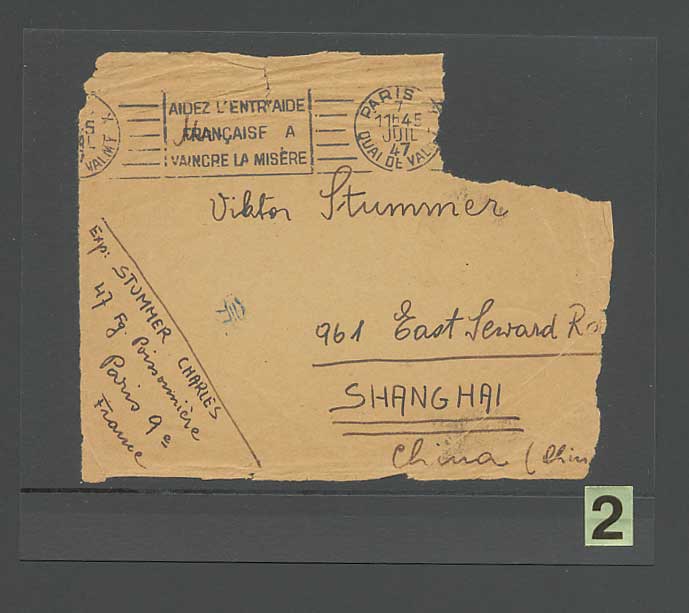 AIDEZ L'ENTR'AIDE
FRANÇAISE A
VAINCRE LA MISÈRE
PARIS X
7
11H45
JUIL
47
QUAI DE VALM
VALMY X
Viktor Stummer
Exp: STUMMER CHARLES
47 Fg. Poissonnière
Paris 9e
France
961 East Seward R
SHANGHAI
China (Chin
2